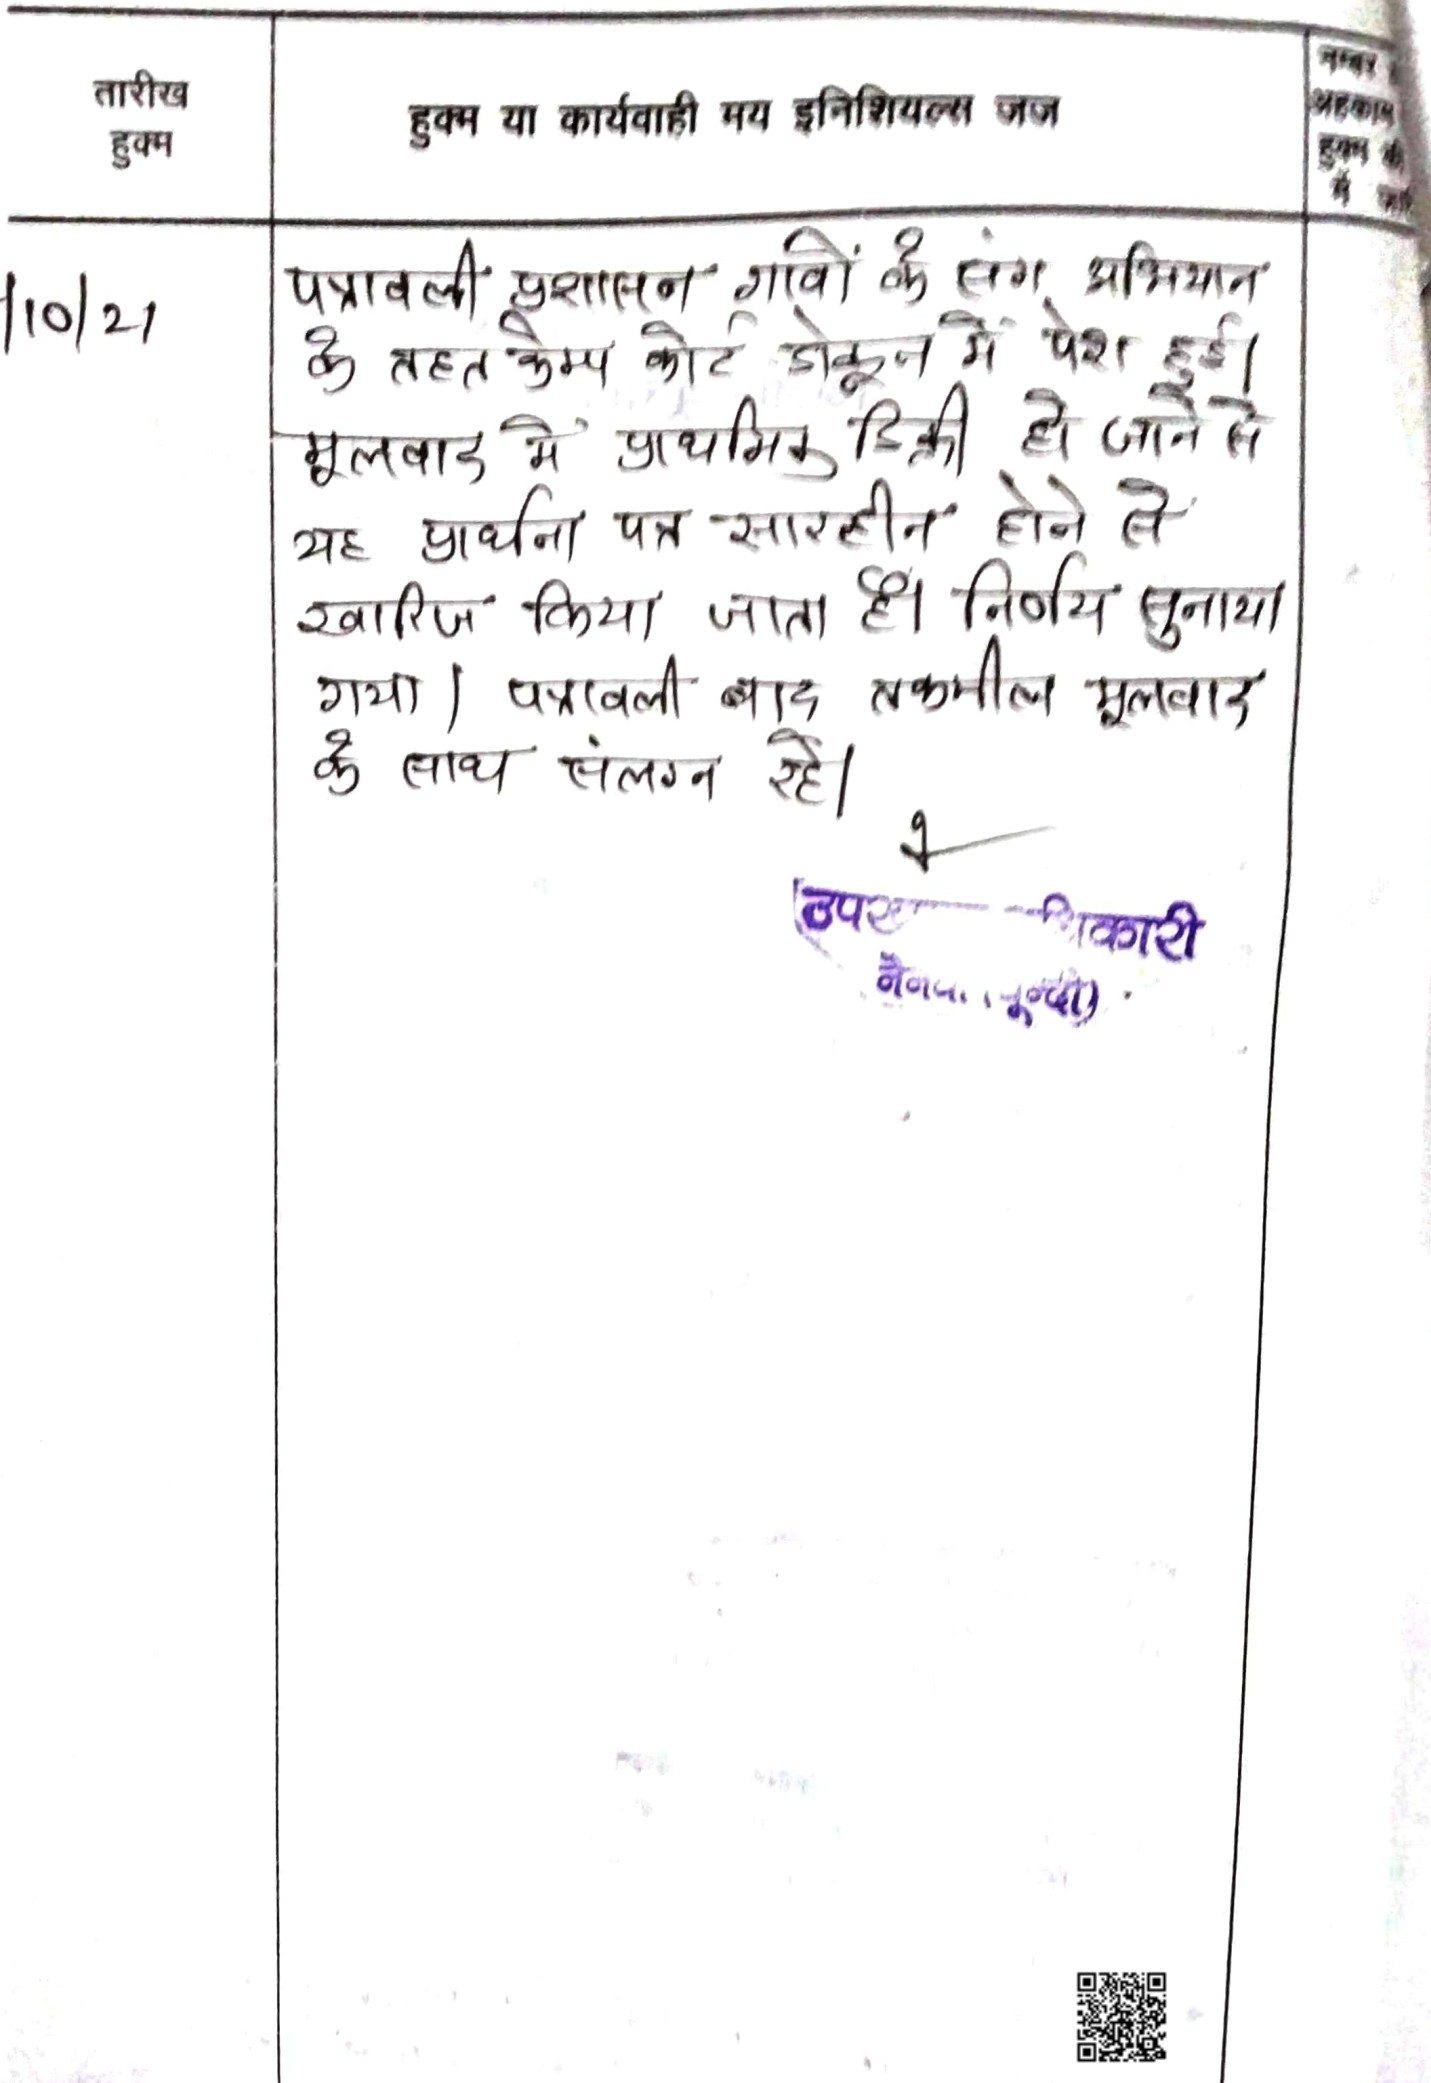 तारीख
हुक्म
हुक्म या कार्यवाही मय इनिशियल्स जज
नम्बर
अहकाम
हुक्म की
में
/10/21
पत्रावली प्रशासन गावों के संग अभियान
के तहत केम्प कोर्ट डोकून में पेश हुई।
मूलवाद में प्राथमिक डिक्री हो जाने से
यह प्रार्थना पत्र सारहीन होने से
खारिज किया जाता है। निर्णय सुनाया
गया। पत्रावली बाद तकमील मूलवाद
के साथ संलग्न रहे।